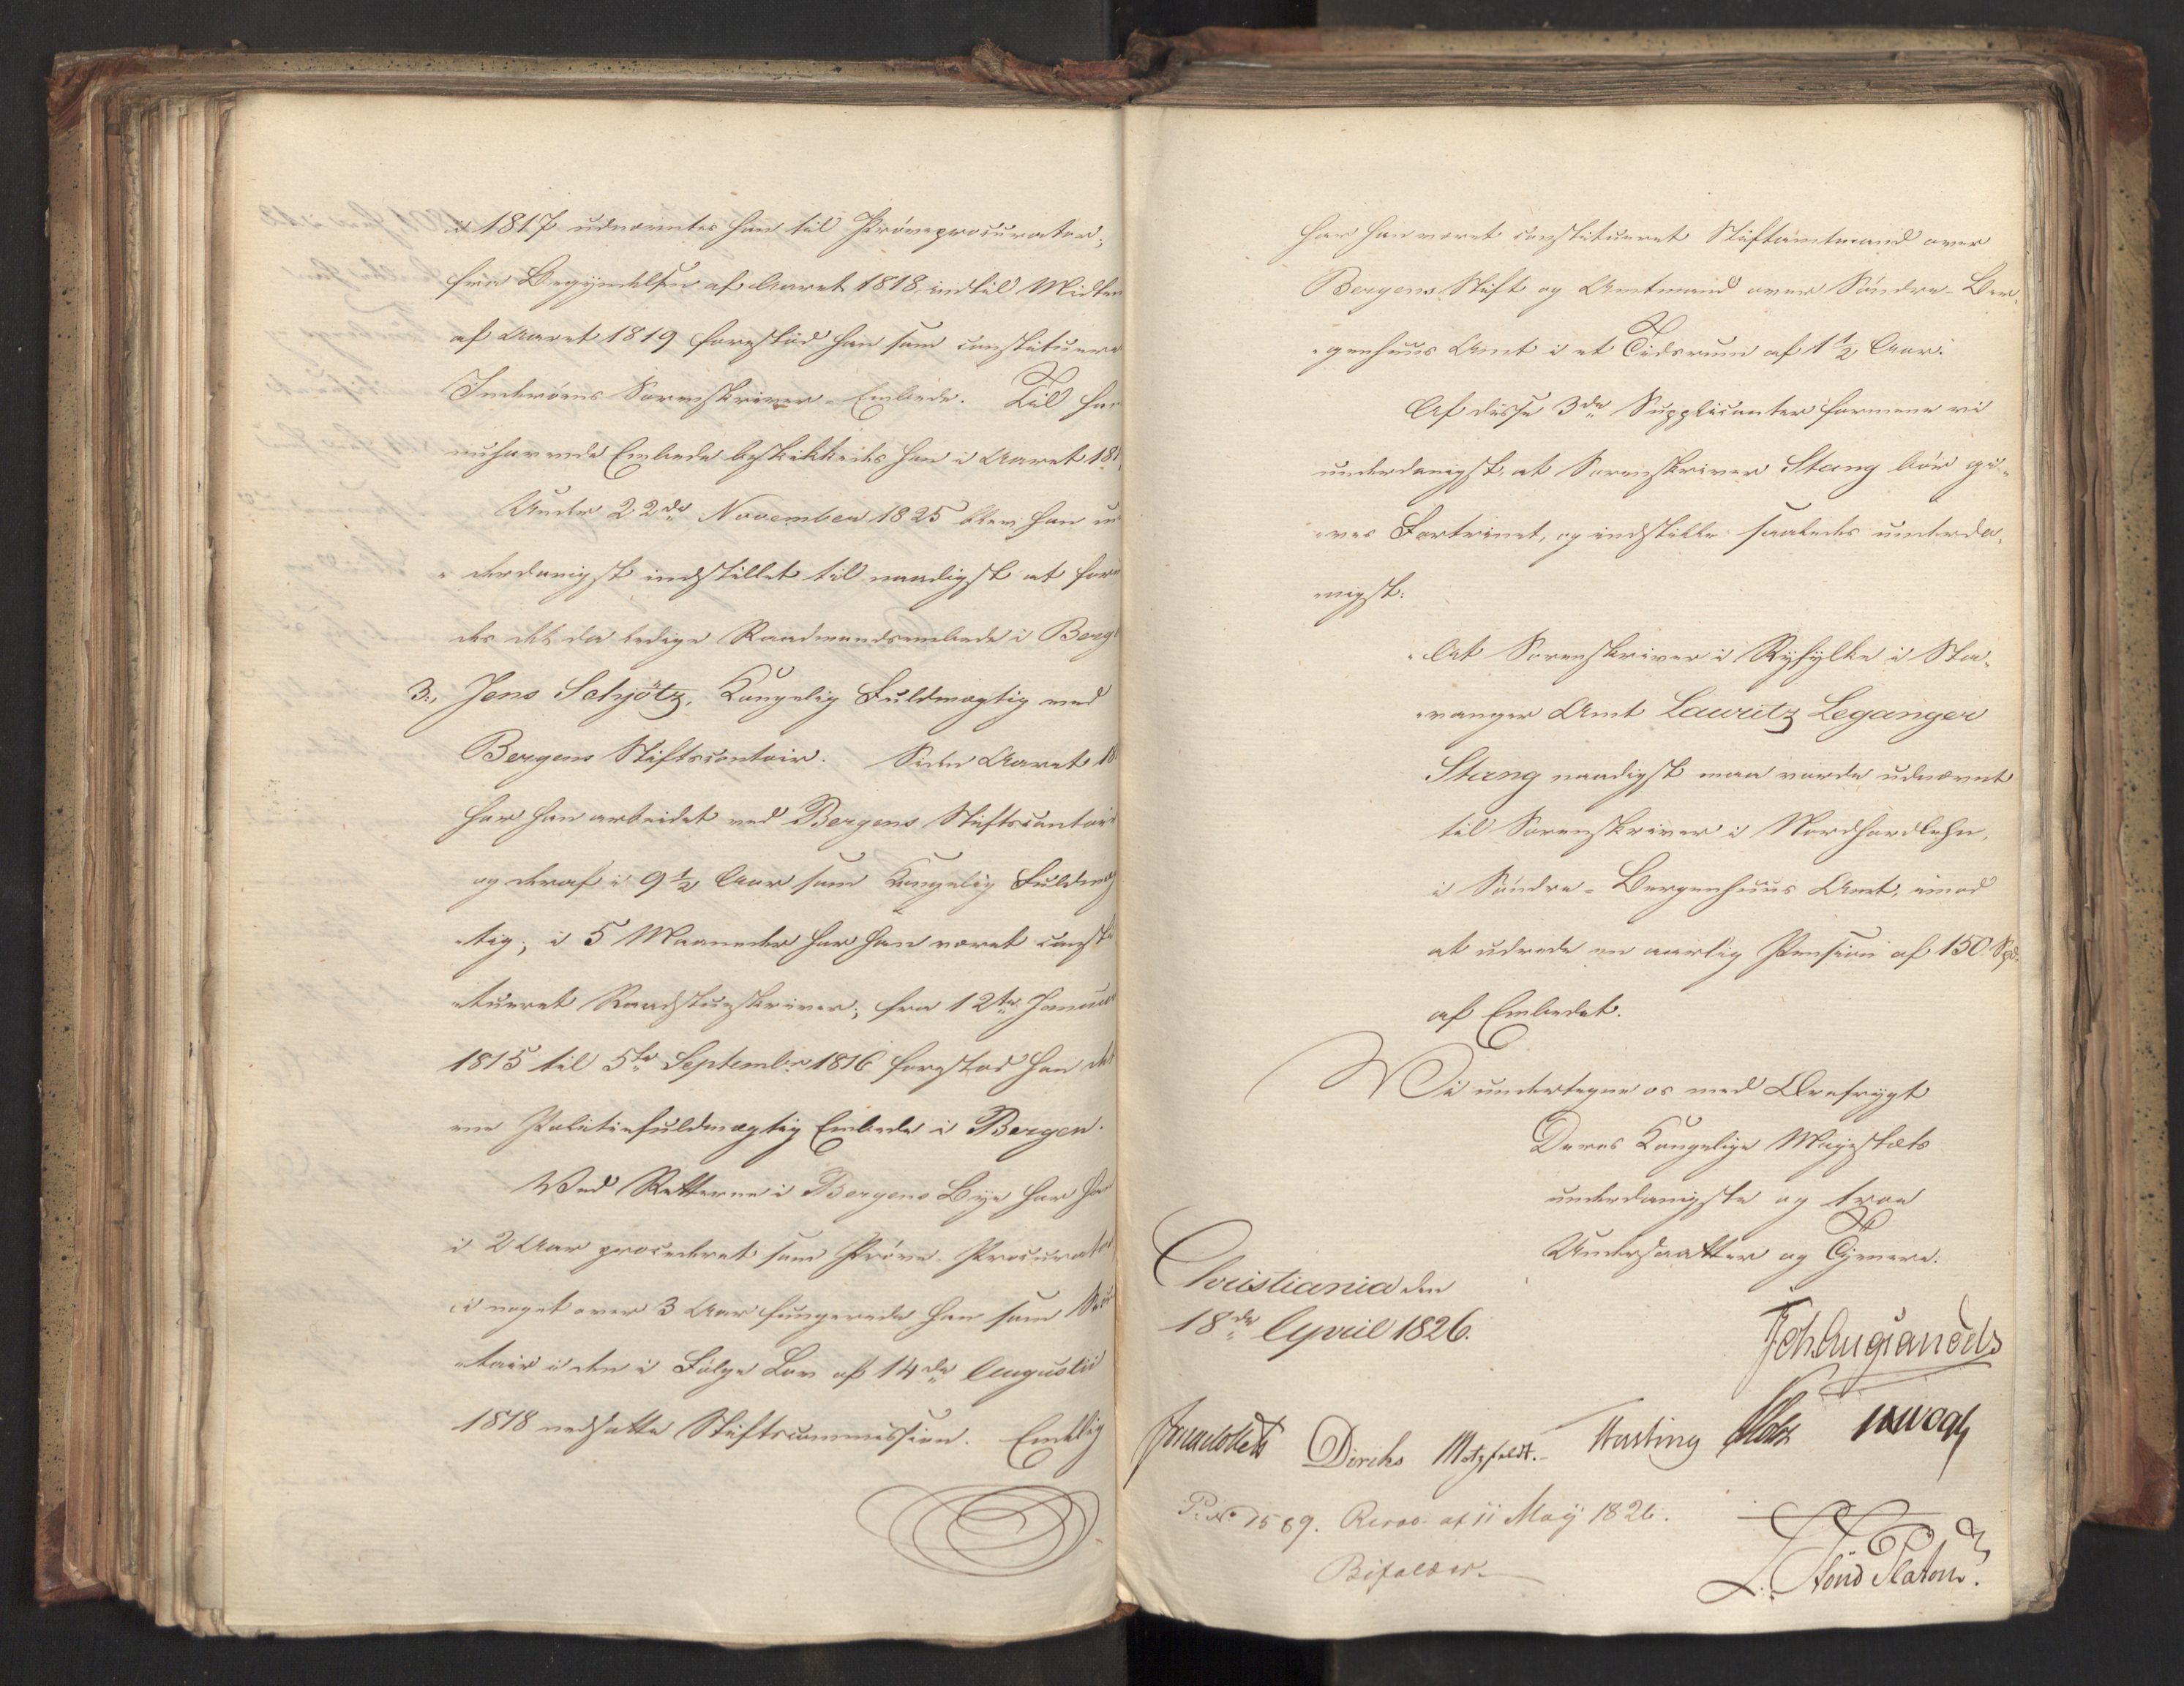 i 1817 udnævntes han til Prøveprocurator,
fra Begyndelsen af Aaret 1818 indtil Midten
af Aaret 1819 forestod han som constitueret
Inderøens Sorenskriver-Embede. Til
nuhavende Embede beskikkedes han i Aaret 18
Under 22de November 1825 blev han un
"derdanigst indstillet til naadigst at for
des det da ledige Raadmandsembede i Berg
3., Jens Schjøtz, Kongelig Fuldmægtig ved
Bergens Stiftscontoir. Siden Aaret 18
har han arbeidet ved Bergens Stiftscontoir
og deraf i 9½ Aar som Kongelig Fuldmæg
"tig; i 5 Maaneder har han været consti
"tueret Raadstueskriver; fra 12te Januar
1815 til 5te Septembr. 1816 forestod han det
ene Politiefuldmægtig Embede i Bergen.
Ved Retterne i Bergens Bye har han
i 2 Aar procederet som Prøve-Procurator
i noget over 3 Aar fungerede han som Secre
"tair i den i Følge Lov af 14de Augustii
1818 nedsatte Stiftscommission. Endelig
har han været constitueret Stiftamtmand over
Bergens Stift og Amtmand over Søndre-Ber-
"genhuus Amt i et Tidsrum af 1½ Aar.
Af disse 3de Supplicanter formene vi
underdanigst, at Sorenskriver Stang bør gi-
"ves Fortrinet, og indstille saaledes underda-
"nigst:
"At Sorenskriver i Ryfylke i Sta-
"vanger Amt Lauritz Leganger
Stang naadigst maa vorde udnævnt
til Sorenskriver i Nordhordlehn,
i Søndre-Bergenhuus Amt, imod
at udrede en aarlig Pension af 150 Spd.
af Embedet.
Vi undertegne os med Ærefrygt
Deres Kongelige Majestæts
underdanigste og troe
Undersaatter og Tjenere.
Christiania den
18de April 1826.
Joh Aug Sandels
Diriks Motzfeldt. Hasting
P. No 1589. Resol. af 11 May 1826.
Bifaldes.
L. Stoud Platou.